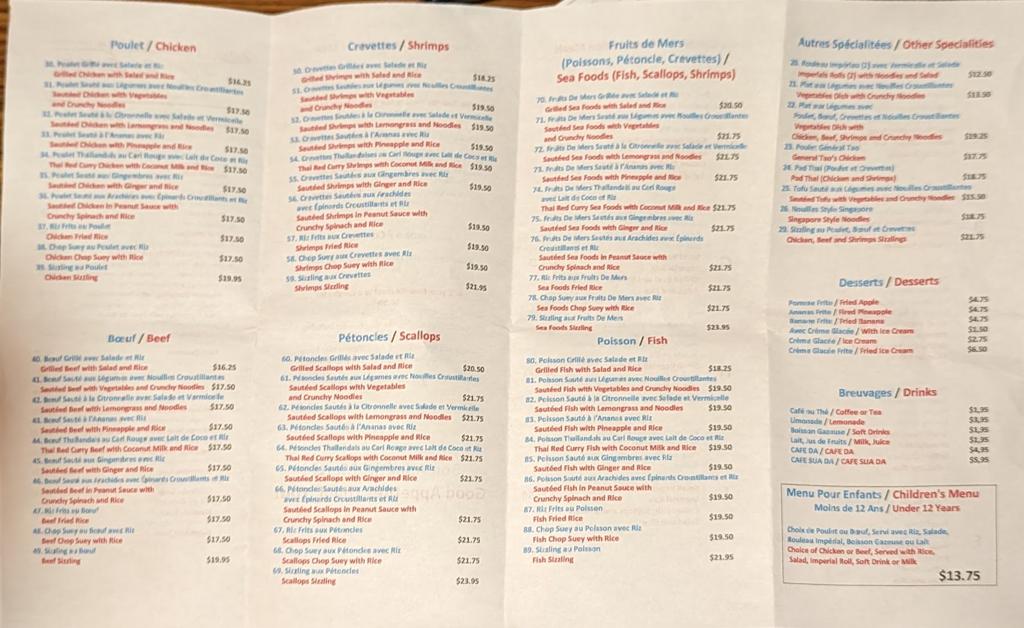 Poulet / Chicken
30. Poulet Grillé avec Salade et Riz
Grilled Chicken with Salad and Rice $16.25
31. Poulet Sauté aux Légumes avec Nouilles Croustillantes
Sautéed Chicken with Vegetables
and Crunchy Noodles $17.50
32. Poulet Sauté à la Citronnelle avec Salade et Vermicelle
Sautéed Chicken with Lemongrass and Noodles $17.50
33. Poulet Sauté à l'Ananas avec Riz
Sautéed Chicken with Pineapple and Rice $17.50
34. Poulet Thaïlandais au Cari Rouge avec Lait de Coco et Riz
Thai Red Curry Chicken with Coconut Milk and Rice $17.50
35. Poulet Sauté aux Gingembres avec Riz
Sautéed Chicken with Ginger and Rice $17.50
36. Poulet Sauté aux Arachides avec Épinards Croustillants et Riz
Sautéed Chicken in Peanut Sauce with
Crunchy Spinach and Rice $17.50
37. Riz Frits au Poulet
Chicken Fried Rice $17.50
38. Chop Suey au Poulet avec Riz
Chicken Chop Suey with Rice $17.50
39. Sizzling au Poulet
Chicken Sizzling $19.95
Bœuf / Beef
40. Bœuf Grillé avec Salade et Riz
Grilled Beef with Salad and Rice $16.25
41. Bœuf Sauté aux Légumes avec Nouilles Croustillantes
Sautéed Beef with Vegetables and Crunchy Noodles $17.50
42. Bœuf Sauté à la Citronnelle avec Salade et Vermicelle
Sautéed Beef with Lemongrass and Noodles $17.50
43. Bœuf Sauté à l'Ananas avec Riz
Sautéed Beef with Pineapple and Rice $17.50
44. Bœuf Thaïlandais au Cari Rouge avec Lait de Coco et Riz
Thai Red Curry Beef with Coconut Milk and Rice $17.50
45. Bœuf Sauté aux Gingembres avec Riz
Sautéed Beef with Ginger and Rice $17.50
46. Bœuf Sauté aux Arachides avec Épinards Croustillants et Riz
Sautéed Beef in Peanut Sauce with
Crunchy Spinach and Rice $17.50
47. Riz Frits au Bœuf
Beef Fried Rice $17.50
48. Chop Suey au Bœuf avec Riz
Beef Chop Suey with Rice $17.50
49. Sizzling au Bœuf
Beef Sizzling $19.95
Crevettes / Shrimps
50. Crevettes Grillées avec Salade et Riz
Grilled Shrimps with Salad and Rice $18.25
51. Crevettes Sautées aux Légumes avec Nouilles Croustillantes
Sautéed Shrimps with Vegetables
and Crunchy Noodles $19.50
52. Crevettes Sautées à la Citronnelle avec Salade et Vermicelle
Sautéed Shrimps with Lemongrass and Noodles $19.50
53. Crevettes Sautées à l'Ananas avec Riz
Sautéed Shrimps with Pineapple and Rice $19.50
54. Crevettes Thaïlandaises au Cari Rouge avec Lait de Coco et Riz
Thai Red Curry Shrimps with Coconut Milk and Rice $19.50
55. Crevettes Sautées aux Gingembres avec Riz
Sautéed Shrimps with Ginger and Rice $19.50
56. Crevettes Sautées aux Arachides
avec Épinards Croustillants et Riz
Sautéed Shrimps in Peanut Sauce with
Crunchy Spinach and Rice $19.50
57. Riz Frits aux Crevettes
Shrimps Fried Rice $19.50
58. Chop Suey aux Crevettes avec Riz
Shrimps Chop Suey with Rice $19.50
59. Sizzling aux Crevettes
Shrimps Sizzling $21.95
Pétoncles / Scallops
60. Pétoncles Grillés avec Salade et Riz
Grilled Scallops with Salad and Rice $20.50
61. Pétoncles Sautés aux Légumes avec Nouilles Croustillantes
Sautéed Scallops with Vegetables
and Crunchy Noodles $21.75
62. Pétoncles Sautés à la Citronnelle avec Salade et Vermicelle
Sautéed Scallops with Lemongrass and Noodles $21.75
63. Pétoncles Sautés à l'Ananas avec Riz
Sautéed Scallops with Pineapple and Rice $21.75
64. Pétoncles Thaïlandais au Cari Rouge avec Lait de Coco et Riz
Thai Red Curry Scallops with Coconut Milk and Rice $21.75
65. Pétoncles Sautés aux Gingembres avec Riz
Sautéed Scallops with Ginger and Rice $21.75
66. Pétoncles Sautés aux Arachides
avec Épinards Croustillants et Riz
Sautéed Scallops in Peanut Sauce with
Crunchy Spinach and Rice $21.75
67. Riz Frits aux Pétoncles
Scallops Fried Rice $21.75
68. Chop Suey aux Pétoncles avec Riz
Scallops Chop Suey with Rice $21.75
69. Sizzling aux Pétoncles
Scallops Sizzling $23.95
Fruits de Mers
(Poissons, Pétoncle, Crevettes) /
Sea Foods (Fish, Scallops, Shrimps)
70. Fruits De Mers Grillé avec Salade et Riz
Grilled Sea Foods with Salad and Rice $20.50
71. Fruits De Mers Sauté aux Légumes avec Nouilles Croustillantes
Sautéed Sea Foods with Vegetables
and Crunchy Noodles $21.75
72. Fruits De Mers Sauté à la Citronnelle avec Salade et Vermicelle
Sautéed Sea Foods with Lemongrass and Noodles $21.75
73. Fruits De Mers Sauté à l'Ananas avec Riz
Sautéed Sea Foods with Pineapple and Rice $21.75
74. Fruits De Mers Thaïlandais au Cari Rouge
avec Lait de Coco et Riz
Thai Red Curry Sea Foods with Coconut Milk and Rice $21.75
75. Fruits De Mers Sautés aux Gingembres avec Riz
Sautéed Sea Foods with Ginger and Rice $21.75
76. Fruits De Mers Sautés aux Arachides avec Épinards
Croustillants et Riz
Sautéed Sea Foods in Peanut Sauce with
Crunchy Spinach and Rice $21.75
77. Riz Frits aux Fruits De Mers
Sea Foods Fried Rice $21.75
78. Chop Suey aux Fruits De Mers avec Riz
Sea Foods Chop Suey with Rice $21.75
79. Sizzling aux Fruits De Mers
Sea Foods Sizzling $23.95
Poisson / Fish
80. Poisson Grillé avec Salade et Riz
Grilled Fish with Salad and Rice $18.25
81. Poisson Sauté aux Légumes avec Nouilles Croustillantes
Sautéed Fish with Vegetables and Crunchy Noodles $19.50
82. Poisson Sauté à la Citronnelle avec Salade et Vermicelle
Sautéed Fish with Lemongrass and Noodles $19.50
83. Poisson Sauté à l'Ananas avec Riz
Sautéed Fish with Pineapple and Rice $19.50
84. Poisson Thaïlandais au Cari Rouge avec Lait de Coco et Riz
Thai Red Curry Fish with Coconut Milk and Rice $19.50
85. Poisson Sauté aux Gingembres avec Riz
Sautéed Fish with Ginger and Rice $19.50
86. Poisson Sauté aux Arachides avec Épinards Croustillants et Riz
Sautéed Fish in Peanut Sauce with
Crunchy Spinach and Rice $19.50
87. Riz Frits au Poisson
Fish Fried Rice $19.50
88. Chop Suey au Poisson avec Riz
Fish Chop Suey with Rice $19.50
89. Sizzling au Poisson
Fish Sizzling $21.95
Autres Spécialitées / Other Specialities
20. Rouleau Impérial (2) avec Vermicelle et Salade
Imperials Rolls (2) with Noodles and Salad $12.50
21. Plat aux Légumes avec Nouilles Croustillantes
Vegetables Dish with Crunchy Noodles $13.50
22. Plat aux Légumes avec
Poulet, Bœuf, Crevettes et Nouilles Croustillantes
Vegetables Dish with
Chicken, Beef, Shrimps and Crunchy Noodles $19.25
23. Poulet Général Tao
General Tao's Chicken $17.75
24. Pad Thai (Poulet et Crevettes)
Pad Thai (Chicken and Shrimps) $18.75
25. Tofu Sauté aux Légumes avec Nouilles Croustillantes
Sautéed Tofu with Vegetables and Crunchy Noodles $15.50
26. Nouilles Style Singapore
Singapore Style Noodles $18.75
29. Sizzling au Poulet, Bœuf et Crevettes
Chicken, Beef and Shrimps Sizzlings $21.75
Desserts / Desserts
Pomme Frite / Fried Apple $4.75
Ananas Frite / Fired Pineapple $4.75
Banane Frite / Fried Banana $4.75
Avec Crème Glacée / With Ice Cream $1.50
Crème Glacée / Ice Cream $2.75
Crème Glacée Frite / Fried Ice Cream $6.50
Breuvages / Drinks
Café ou Thé / Coffee or Tea $1,95
Limonade / Lemonade $3,95
Boisson Gazeuse / Soft Drinks $1,95
Lait, Jus de Fruits / Milk, Juice $1,95
CAFE DA / CAFE DA $4,95
CAFE SUA DA / CAFE SUA DA $5,95
Menu Pour Enfants / Children's Menu
Moins de 12 Ans / Under 12 Years
Choix de Poulet ou Bœuf, Servi avec Riz, Salade,
Rouleau Impérial, Boisson Gazeuse ou Lait
Choice of Chicken or Beef, Served with Rice,
Salad, Imperial Roll, Soft Drink or Milk
$13.75